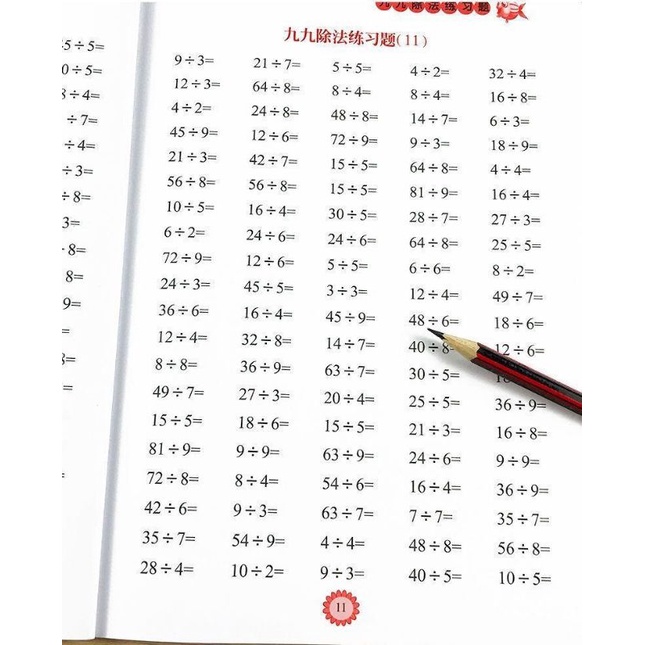 九九除法练习题
九九除法练习题(11)
9÷3= 21÷7= 5÷5= 4÷2= 32÷4=
12÷3= 64÷8= 8÷4= 8÷4= 16÷8=
4÷2= 24÷8= 48÷8= 14÷7= 6÷3=
45÷9= 12÷6= 72÷9= 9÷3= 18÷9=
21÷3= 42÷7= 15÷5= 64÷8= 4÷4=
56÷8= 56÷8= 15÷5= 81÷9= 16÷4=
10÷5= 16÷4= 30÷5= 28÷7= 27÷3=
6÷2= 24÷6= 24÷6= 64÷8= 25÷5=
72÷9= 12÷6= 5÷5= 6÷6= 8÷2=
24÷3= 45÷5= 3÷3= 12÷4= 49÷7=
36÷6= 16÷4= 45÷9= 48÷6= 18÷6=
12÷4= 32÷8= 14÷7= 40÷8 12÷6=
8÷8= 36÷9= 63÷7= 30÷5=
49÷7= 27÷3= 20÷4= 25÷5= 36÷9=
15÷5= 18÷6= 15÷5= 21÷3= 16÷8=
81÷9= 9÷9= 63÷9= 24÷6= 9÷9=
72÷8= 8÷4= 54÷6= 16÷4= 36÷9=
42÷6= 9÷3= 63÷7= 7÷7= 35÷7=
35÷7= 54÷9= 4÷4= 48÷8= 56÷8=
28÷4= 10÷2= 9÷3= 40÷5= 10÷5=
11